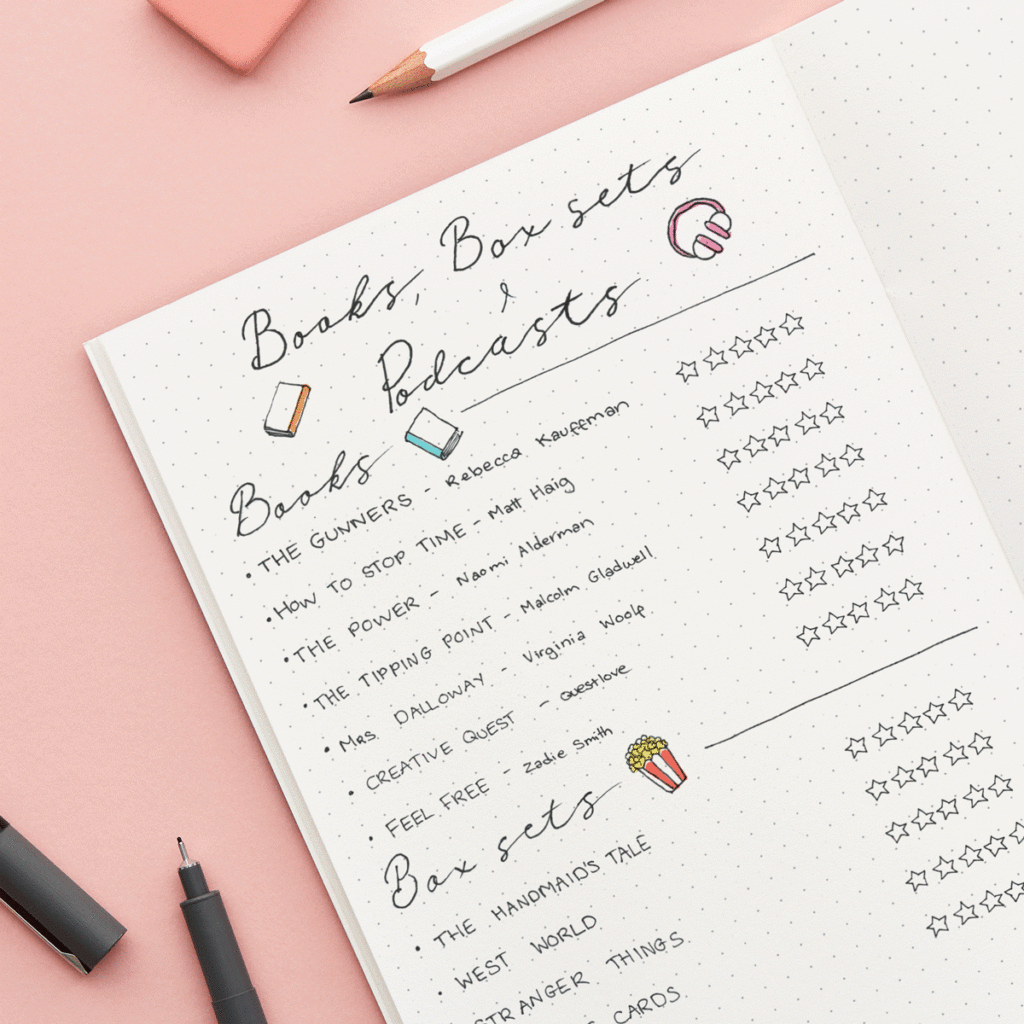 Books, Box sets
&
Podcasts
Books
• THE GUNNERS - Rebecca Kauffman
• HOW TO STOP TIME - Matt Haig
• THE POWER - Naomi Alderman
• THE TIPPING POINT - Malcolm Gladwell
• MRS. DALLOWAY - Virginia Woolf
• CREATIVE QUEST - Questlove
• FEEL FREE - Zadie Smith
Box sets
• THE HANDMAID'S TALE
• WEST WORLD
STRANGER THINGS
CARDS